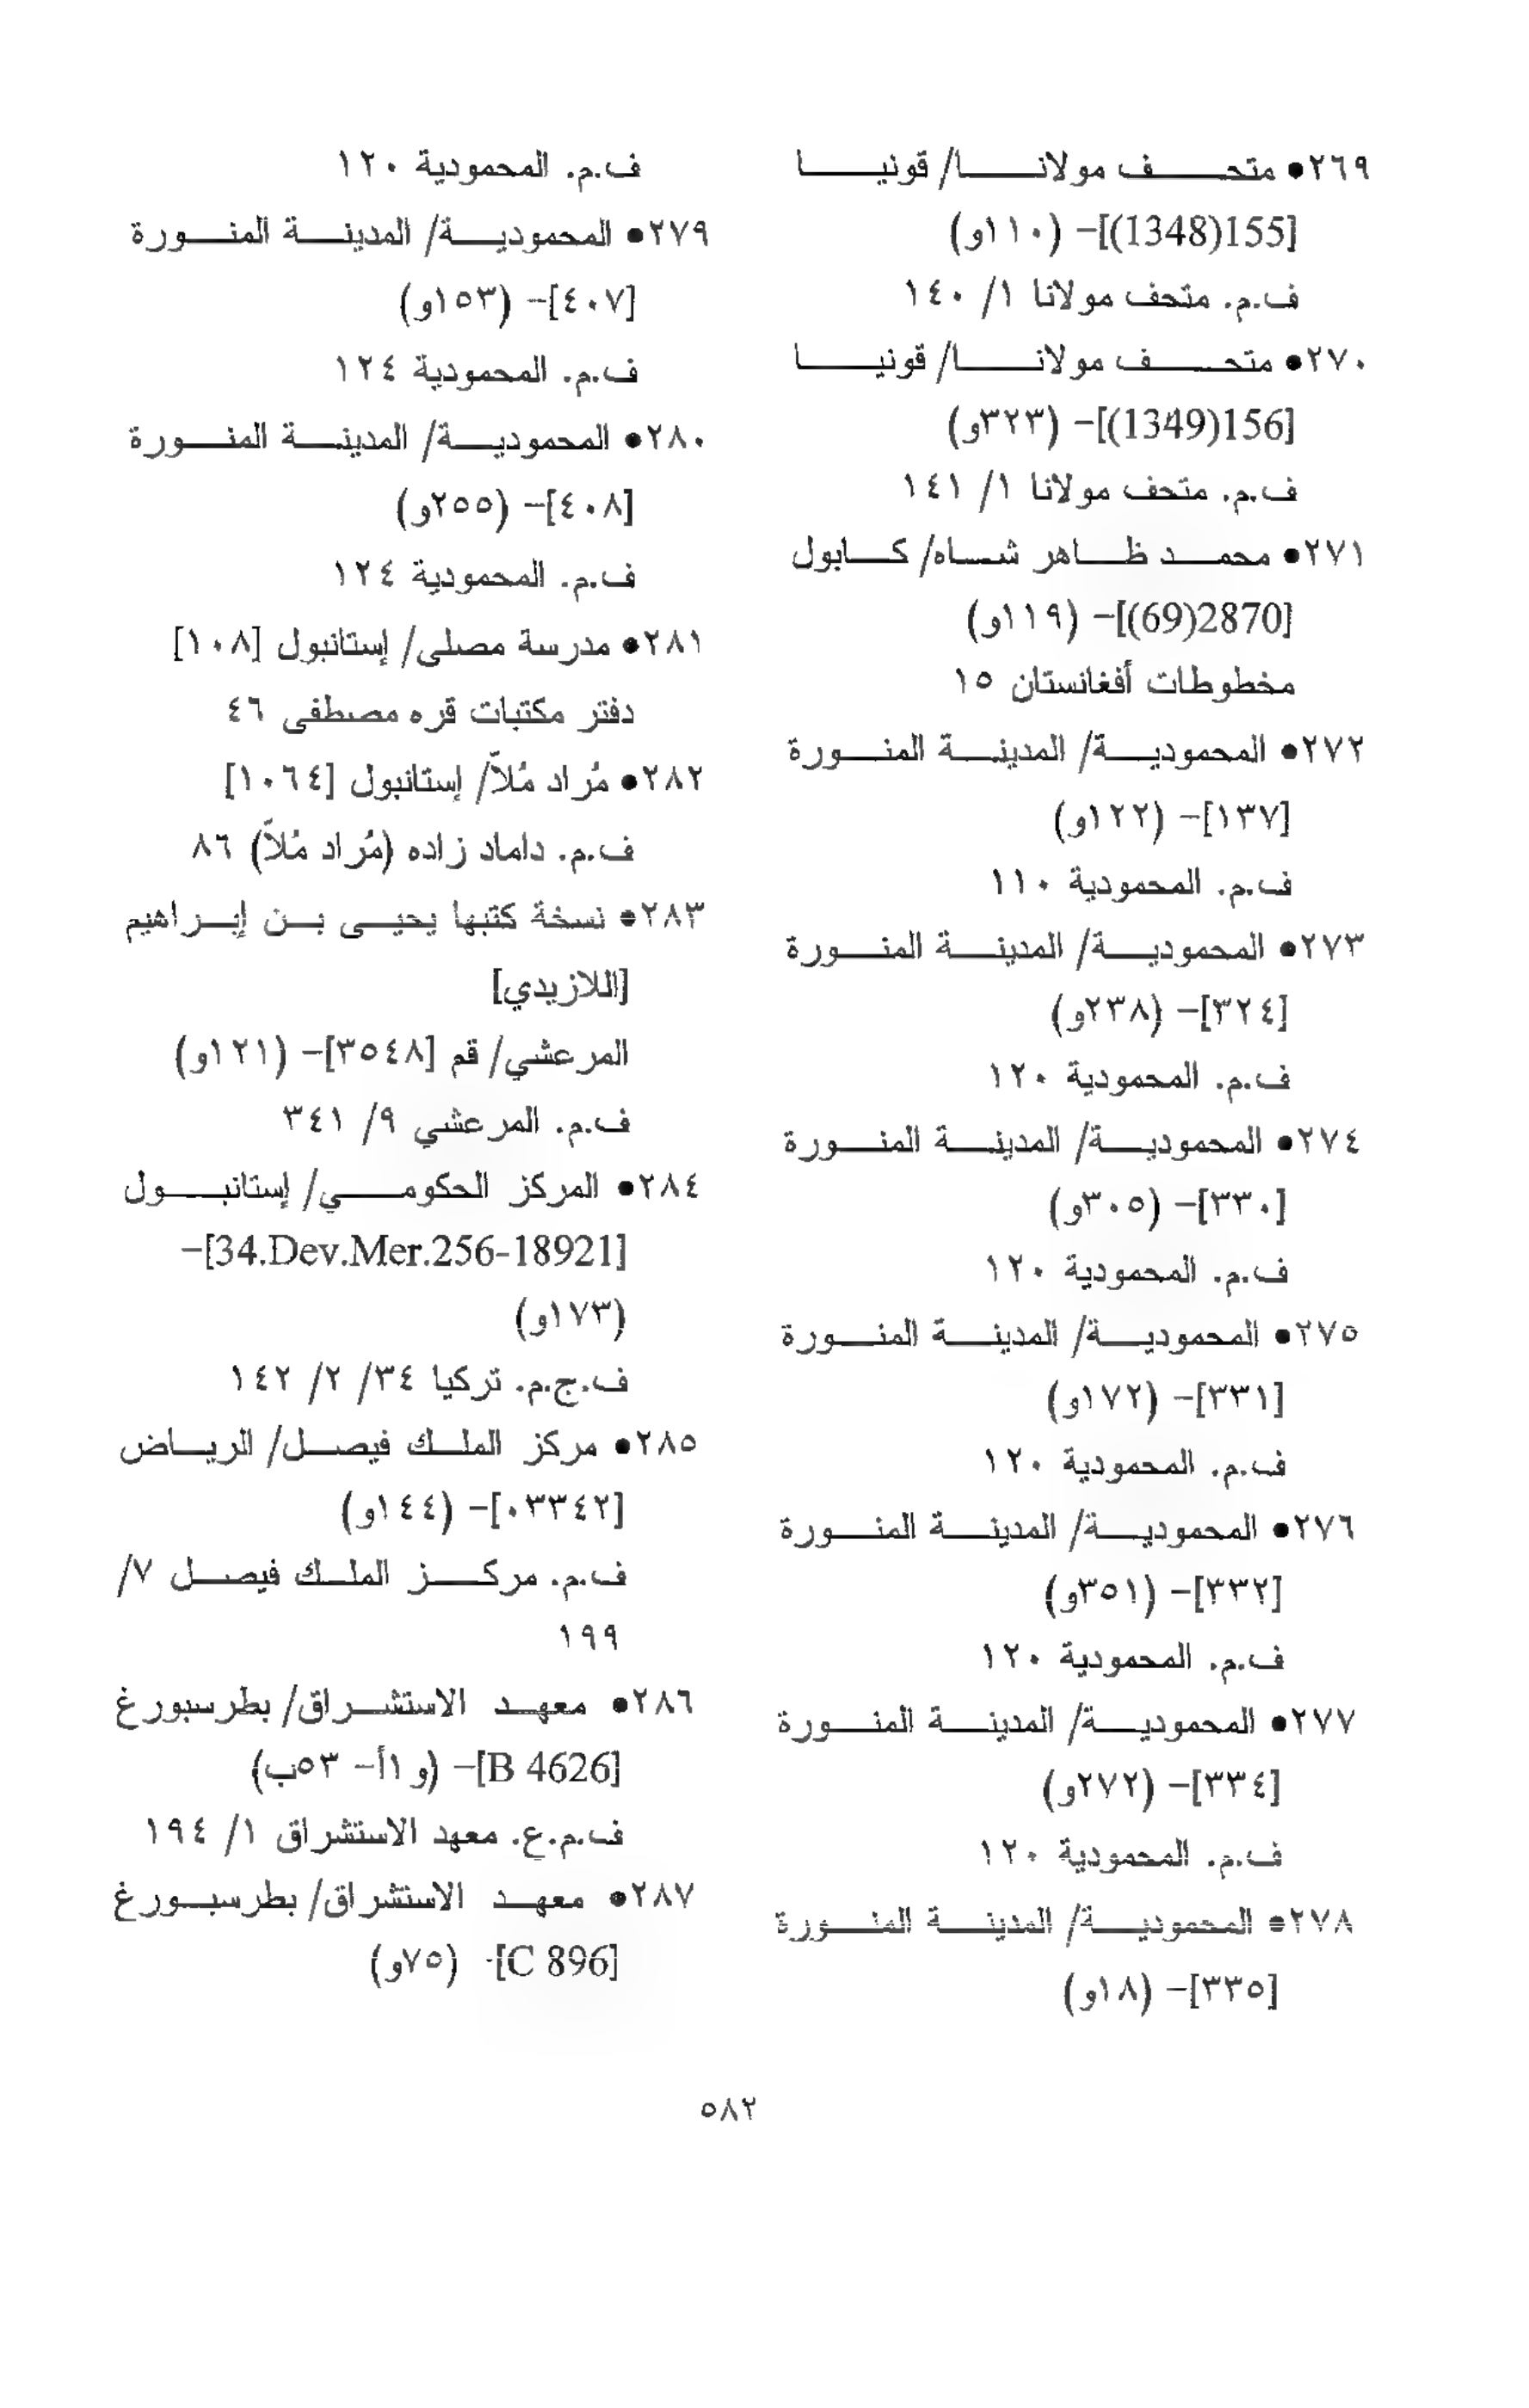 ٢٦٩● متحف مولانا/ قونيا
[155(1348)]– (١١٠و)
ف.م. متحف مولانا ١/ ١٤٠
٢٧٠● متحف مولانا/ قونيا
[156(1349)]– (٣٢٣و)
ف.م. متحف مولانا ١/ ١٤١
٢٧١● محمد ظاهر شاه/ كابول
[2870(69)]– (١١٩و)
مخطوطات أفغانستان ١٥
٢٧٢● المحمودية/ المدينة المنورة
[١٣٧]– (١٢٢و)
ف.م. المحمودية ١١٠
٢٧٣● المحمودية/ المدينة المنورة
[٣٢٤]– (٢٣٨و)
ف.م. المحمودية ١٢٠
٢٧٤● المحمودية/ المدينة المنورة
[٣٣٠]– (٣٠٥و)
ف.م. المحمودية ١٢٠
٢٧٥● المحمودية/ المدينة المنورة
[٣٣١]– (١٧٢و)
ف.م. المحمودية ١٢٠
٢٧٦● المحمودية/ المدينة المنورة
[٣٣٢]– (٣٥١و)
ف.م. المحمودية ١٢٠
٢٧٧● المحمودية/ المدينة المنورة
[٣٣٤]– (٢٧٢و)
ف.م. المحمودية ١٢٠
٢٧٨● المحمودية/ المدينة المنورة
[٣٣٥]– (١٨و)
ف.م. المحمودية ١٢٠
٢٧٩● المحمودية/ المدينة المنورة
[٤٠٧]– (١٥٣و)
ف.م. المحمودية ١٢٤
٢٨٠● المحمودية/ المدينة المنورة
[٤٠٨]– (٢٥٥و)
ف.م. المحمودية ١٢٤
٢٨١● مدرسة مصلى/ إستانبول [١٠٨]
دفتر مكتبات قره مصطفى ٤٦
٢٨٢● مُراد مُلاّ/ إستانبول [١٠٦٤]
ف.م. داماد زاده (مُراد مُلاّ) ٨٦
٢٨٣● نسخة كتبها يحيى بن إبراهيم
[اللازيدي]
المرعشي/ قم [٣٥٤٨]– (١٢١و)
ف.م. المرعشي ٩/ ٣٤١
٢٨٤● المركز الحكومي/ إستانبول
[34.Dev.Mer.256-18921]–
(١٧٣و)
ف.ج.م. تركيا ٣٤/ ٢/ ١٤٢
٢٨٥● مركز الملك فيصل/ الرياض
[٠٣٣٤٢]– (١٤٤و)
ف.م. مركز الملك فيصل ٧/
١٩٩
٢٨٦● معهد الاستشراق/ بطرسبورغ
[B 4626]– (و ١أ– ٥٣ب)
ف.م.ع. معهد الاستشراق ١/ ١٩٤
٢٨٧● معهد الاستشراق/ بطرسبورغ
[C 896]- (٧٥و)
٥٨٢